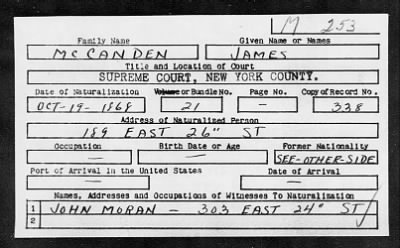 M 253
Family Name Given Name or Names
McCANDEN JAMES
Title and Location of Court
SUPREME COURT, NEW YORK COUNTY.
Date of Naturalization Volume or Bundle No. Page No. Copy of Record No.
OCT-19-1868 21 — 338
Address of Naturalized Person
189 EAST 26" ST
Occupation Birth Date or Age Former Nationality
— — SEE-OTHER-SIDE
Port of Arrival in the United States Date of Arrival
— —
Names, Addresses and Occupations of Witnesses To Naturalization
1 JOHN MORAN — 303 EAST 24" ST
2